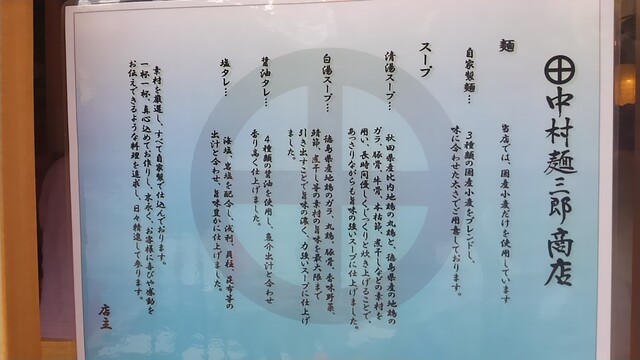 中村麺三郎商店
麺
当店では、国産小麦だけを使用しています
自家製麺…
3種類の国産小麦をブレンドし、
味に合わせた太さでご用意しております。
スープ
清湯スープ…
秋田県産比内地鶏の丸鶏と、徳島県産の地鶏の
ガラ、豚骨、牛骨、本枯節、煮干しなどの素材を
用い、長時間優しくじっくりと炊き上げることで、
あっさりながらも旨味の強いスープに仕上げました。
白湯スープ…
徳島県産地鶏のガラ、丸鶏、豚骨、香味野菜、
鯖節、煮干し等の素材の旨味を最大限まで
引き出すことで旨味の濃く、力強いスープに仕上げ
ました。
醤油タレ…
4種類の醤油を使用し、魚介出汁と合わせ
香り高く仕上げました。
塩タレ…
海塩、岩塩を配合し、浅利、貝柱、昆布等の
出汁と合わせ旨味豊かに仕上げました。
素材を厳選し、すべて自家製で仕込んでおります。
一杯一杯、真心込めてお作りし、末永く、お客様に喜びや感動を
お伝えできるような料理を追求し、日々精進して参ります。
店主